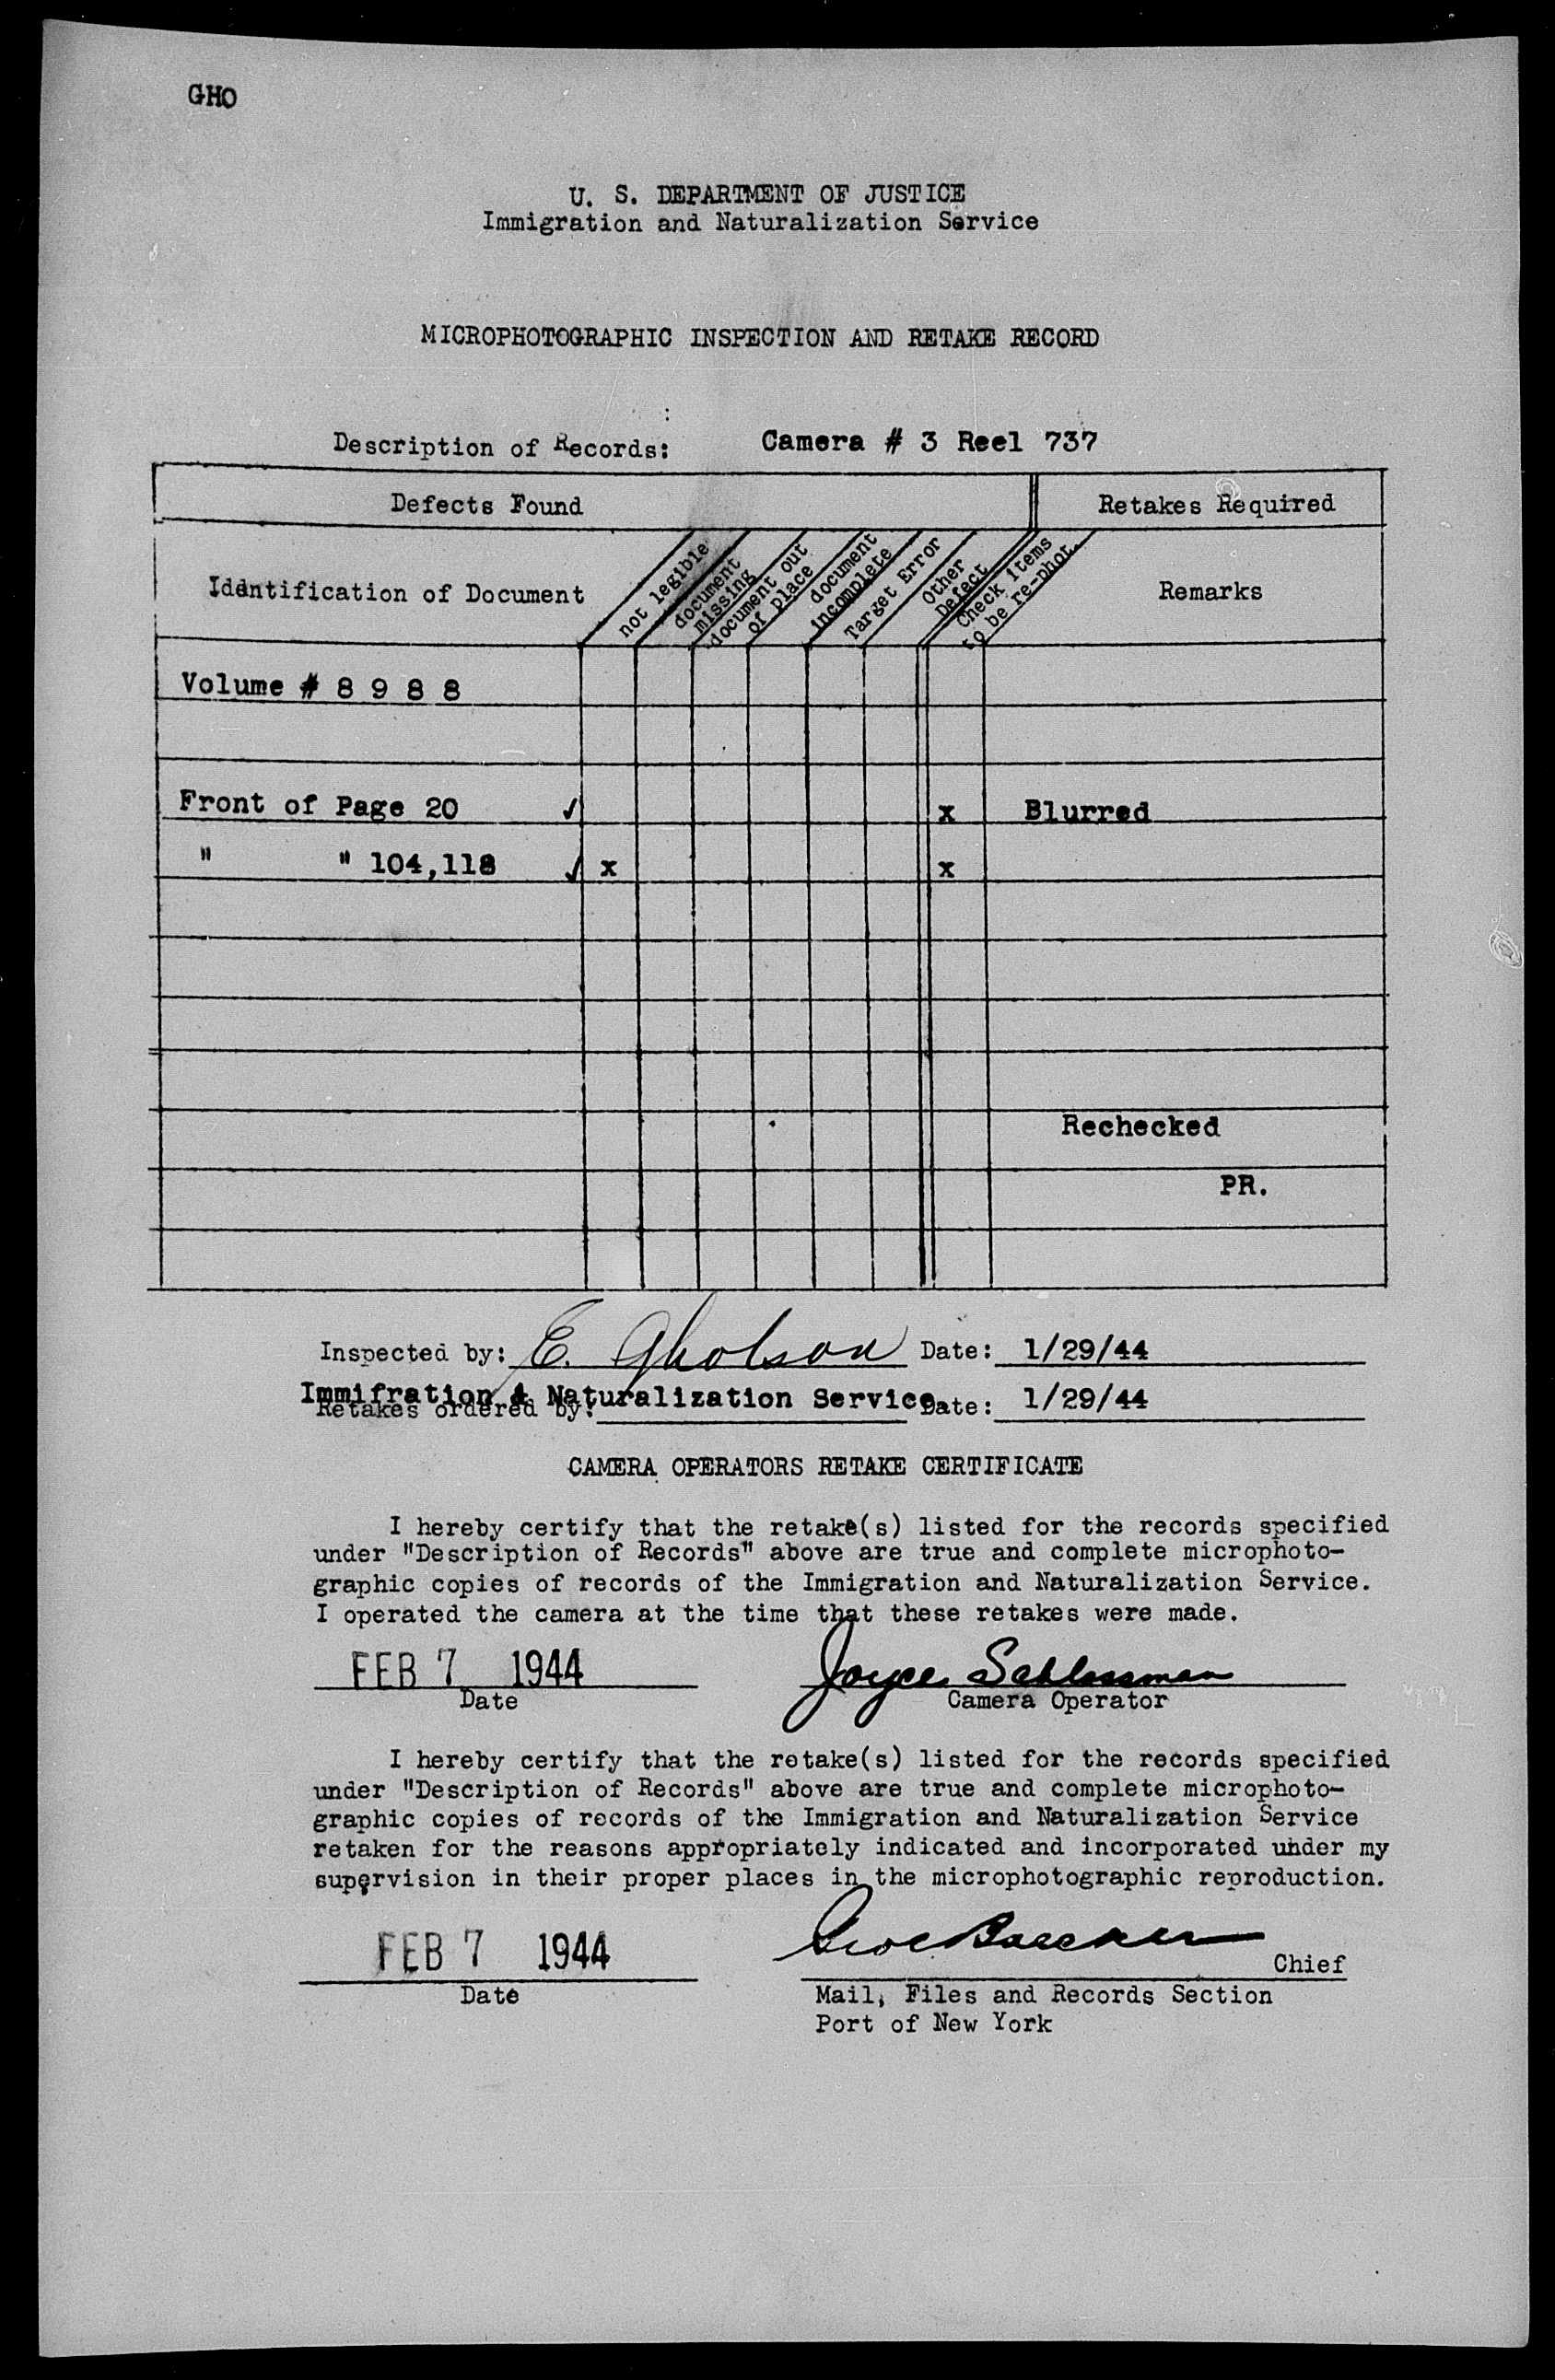 GHO
U. S. DEPARTMENT OF JUSTICE
Immigration and Naturalization Service
MICROPHOTOGRAPHIC INSPECTION AND RETAKE RECORD
:
Description of Records: Camera # 3 Reel 737
Defects Found Retakes Required
Identification of Document
not legible
document
missing
document out
of place
document
incomplete
Target Error
Other
Defect
Check items
to be re-phot.
Remarks
Volume # 8 9 8 8
Front of Page 20 ✓ x Blurred
" " 104,118 ✓ x x
Rechecked
PR.
Inspected by: E. Gholson Date: 1/29/44
Immifration & Naturalization Service
Retakes ordered by: Date: 1/29/44
CAMERA OPERATORS RETAKE CERTIFICATE
I hereby certify that the retake(s) listed for the records specified
under "Description of Records" above are true and complete microphoto-
graphic copies of records of the Immigration and Naturalization Service.
I operated the camera at the time that these retakes were made.
FEB 7 1944 Joyce Schlossman
Date Camera Operator
I hereby certify that the retake(s) listed for the records specified
under "Description of Records" above are true and complete microphoto-
graphic copies of records of the Immigration and Naturalization Service
retaken for the reasons appropriately indicated and incorporated under my
supervision in their proper places in the microphotographic reproduction.
FEB 7 1944 Chief
Date Mail, Files and Records Section
Port of New York